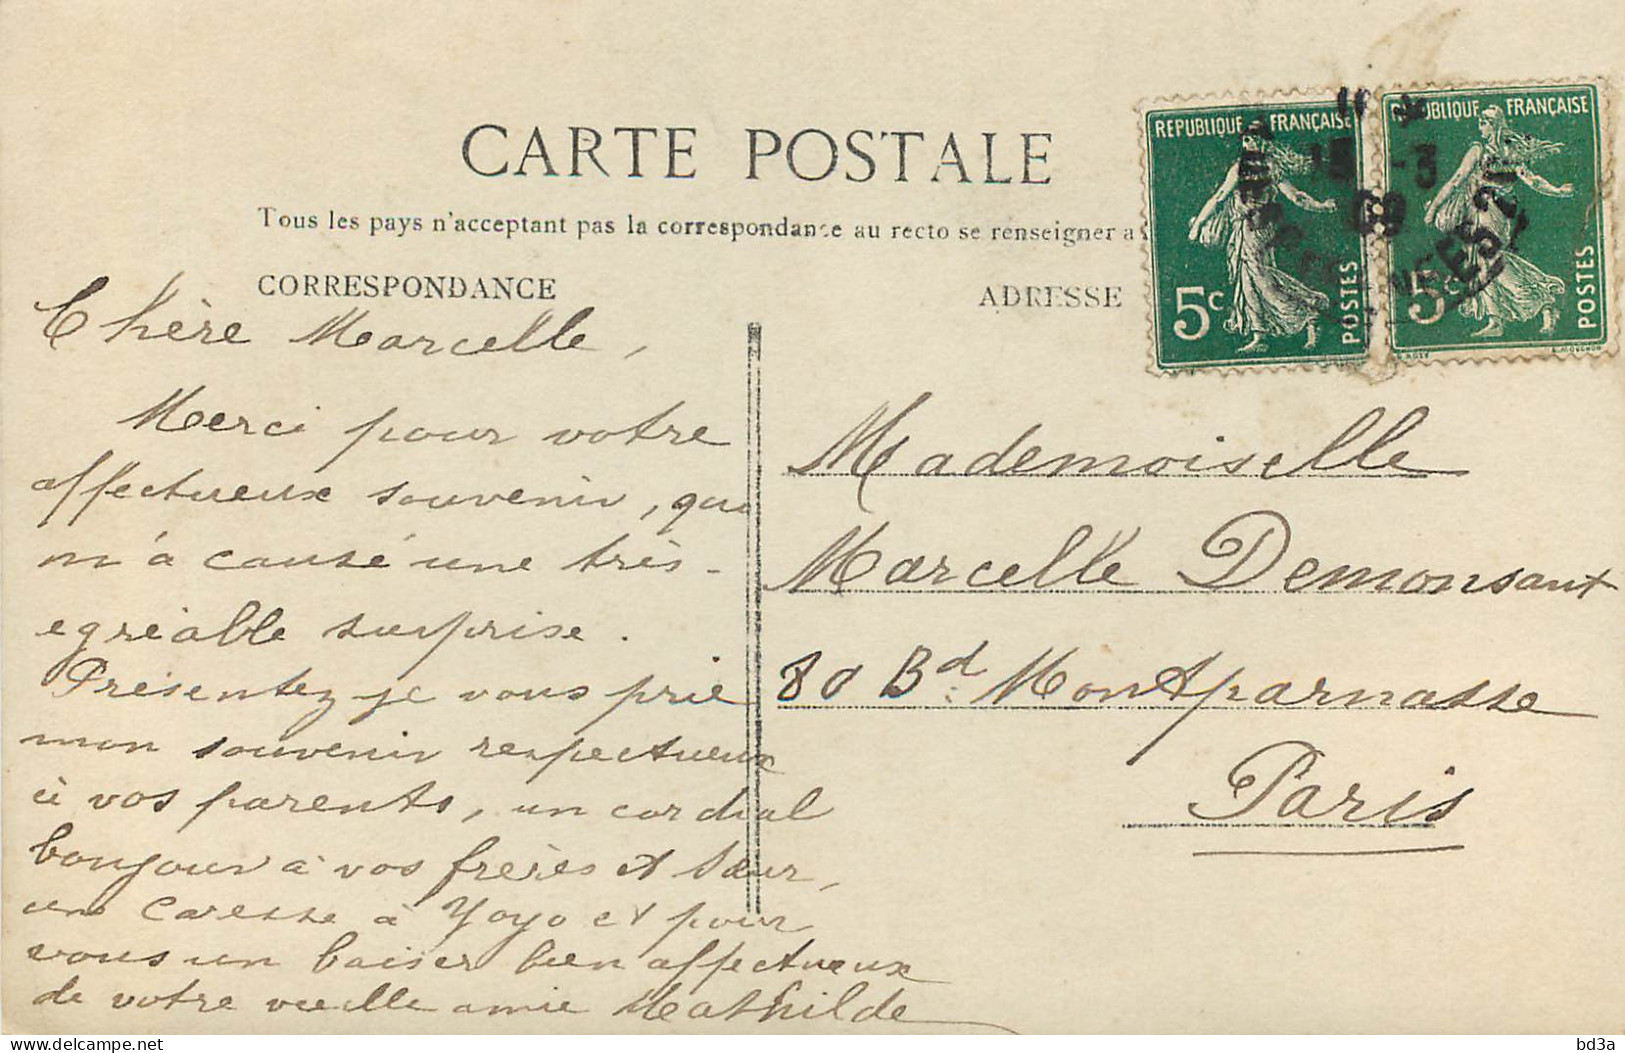 CARTE POSTALE
Tous les pays n'acceptant pas la correspondance au recto se renseigner a
CORRESPONDANCE
Chère Marcelle,
Merci pour votre
affectueux souvenir, qui
m'a causé une très-
egréable surprise.
Présentez-je vous prie
mon souvenir respectueux
à vos parents, un cordial
bonjour à vos frères et sœur,
une caresse à Yoyo et pour
vous un baiser bien affectueux
de votre vieille amie Mathilde
ADRESSE
Mademoiselle
Marcelle Demonsant
80 Bd. Montparnasse
Paris
REPUBLIQUE FRANÇAISE
5c
POSTES
REPUBLIQUE FRANÇAISE
5c
POSTES
15 -3
09
delcampe.net
bd3a